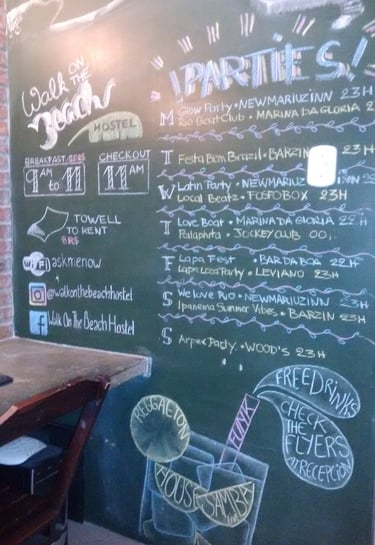 Walk ON
THE
Beach
HOSTEL
BREAKFAST
9AM TO 11
CHECKOUT
11AM
TOWELL
TO RENT
8R$
WiFi askmenow
@walkonthebeachhostel
f Walk On The Beach Hostel
¡PARTIES!
M Glow Party • NEWMARIUZINN 23H
Rio Boat Club • MARINA DA GLORIA 2
T Festa Bem Brazil • BARZIN 23H
W Latin Party • NEWMARIUZINN 22H
Local Beatz • FOSFOBOX 23H
T Love Boat • MARINA DA GLORIA 22H
Palaphita • JOCKEY CLUB 00,.
F Lapa Fest • BAR DA BOA 22H
Lapa Loca Party • LEVIANO 23H
S We love Rio • NEWMARIUZINN 23H
Ipanema Summer Vibes • BARZIN 23H
S Arpex Party • WOOD'S 23H
FREE DRINKS
CHECK
THE
FLYERS
AT RECEPCION
REGGAETON
FUNK
HOUSE
SAMBA